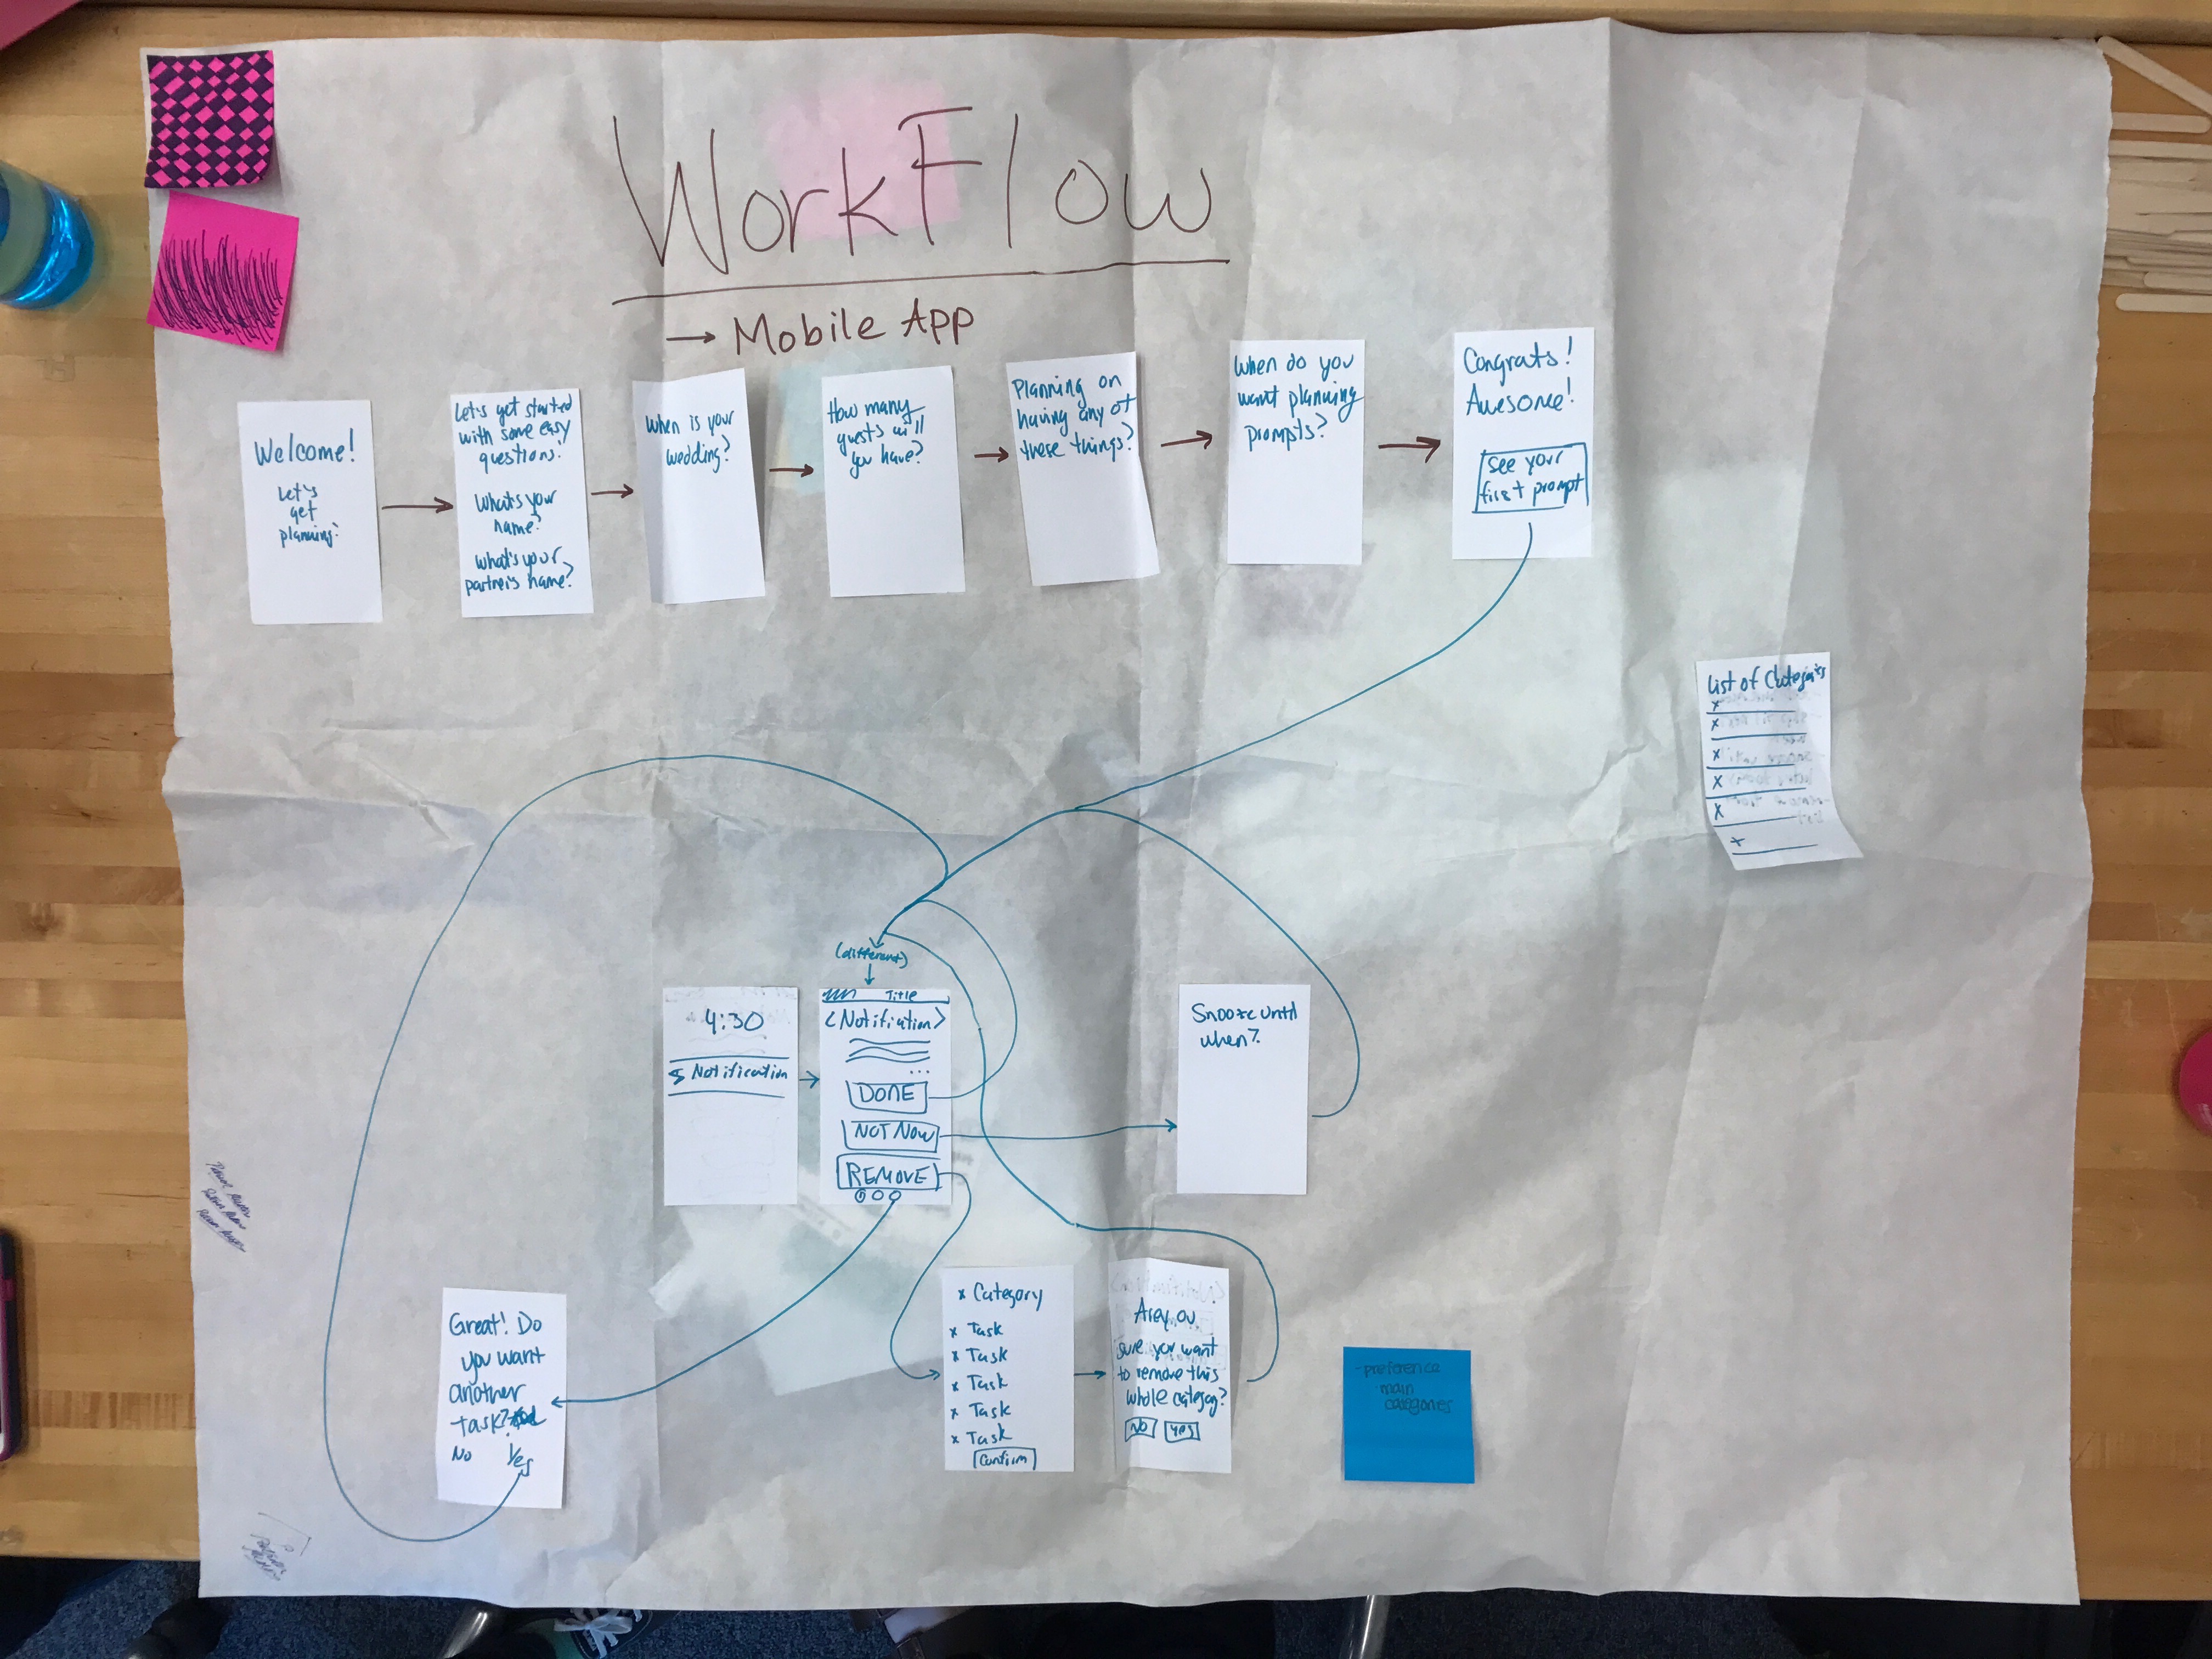 WorkFlow
→ Mobile App
Welcome!
Let's
get
planning!
Let's get started
with some easy
questions!
What's your
name?
What's your
partner's name?
When is your
wedding?
How many
guests will
you have?
Planning on
having any of
these things?
When do you
want planning
prompts?
Congrats!
Awesome!
See your
first prompt
List of Categories
x
x
x
x
x
+
(different)
4:30
Notification
Title
<Notifiction>
...
DONE
NOT NOW
REMOVE
Snooze until
when?
Great! Do
you want
another
task?
No Yes
x Category
x Task
x Task
x Task
x Task
x Task
Confirm
Are you
sure you want
to remove this
whole category?
No Yes
-preference
main
categories